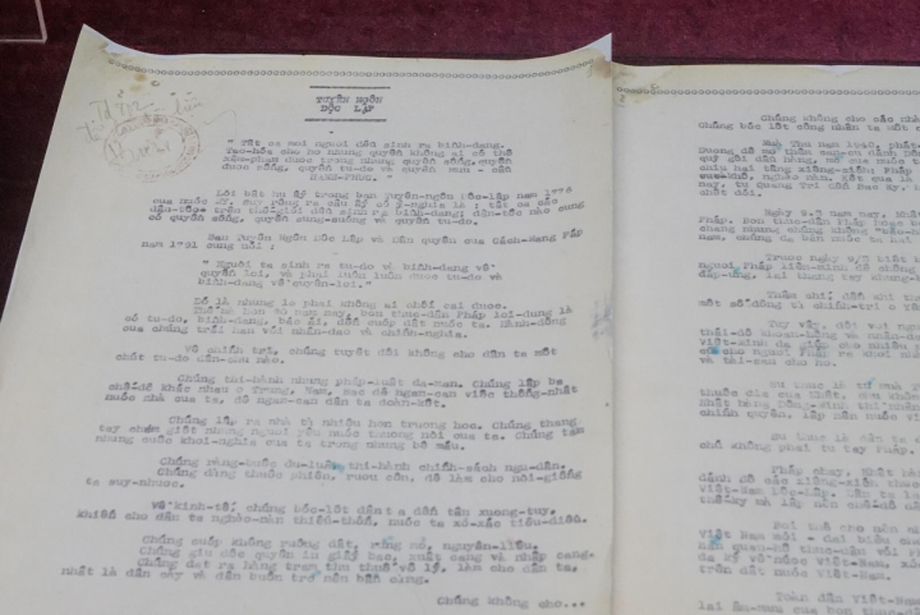 TUYÊN NGÔN
ĐỘC LẬP
" Tất cả mọi người đều sinh ra bình-đẳng.
Tạo-hóa cho họ những quyền không ai có thể
xâm-phạm được trong những quyền sống, quyền
được sống, quyền tự-do và quyền mưu - cầu
HẠNH-PHÚC. "
Lời bất hủ ấy trong bản Tuyên-ngôn Độc-lập năm 1776
của nước Mỹ. Suy rộng ra câu ấy có ý-nghĩa là : tất cả các
dân-tộc trên thế-giới đều sinh ra bình-đẳng; dân-tộc nào cũng
có quyền sống, quyền sung-sướng và quyền tự-do.
Bản Tuyên Ngôn Dân Quyền và Dân quyền của Cách-Mạng Pháp
năm 1791 cũng nói :
" Người ta sinh ra tự-do và bình-đẳng về
quyền lợi, và phải luôn luôn được tự-do và
bình-đẳng về quyền-lợi."
Đó là những lẽ phải không ai chối cãi được.
Thế mà hơn 80 năm nay, bọn thực-dân Pháp lợi-dụng lá
cờ tự-do, bình-đẳng, bác ái, đến cướp đất nước ta. Hành-động
của chúng trái hẳn với nhân-đạo và chính-nghĩa.
Về chính trị, chúng tuyệt đối không cho dân ta một
chút tự-do dân-chủ nào.
Chúng thi-hành những pháp-luật dã-man. Chúng lập ba
chế-độ khác nhau ở Trung, Nam, Bắc để ngăn-cản việc thống-nhất
nước nhà của ta, để ngăn-cản dân ta đoàn-kết.
Chúng lập ra nhà tù nhiều hơn trường học. Chúng thẳng
tay chém giết những người yêu nước thương nòi của ta. Chúng tắm
những cuộc khởi-nghĩa của ta trong những bể máu.
Chúng ràng-buộc dư-luận, thi-hành chính-sách ngu-dân.
Chúng dùng thuốc phiện, rượu cồn, để làm cho nòi-giống
ta suy-nhược.
Về kinh-tế, chúng bóc-lột dân ta đến tận xương-tủy,
khiến cho dân ta nghèo-nàn thiếu-thốn, nước ta xơ-xác tiêu-điều.
Chúng cướp không ruộng đất, rừng mỏ, nguyên-liệu.
Chúng giữ độc quyền in giấy bạc, xuất cảng và nhập cảng.
Chúng đặt ra hàng trăm thứ thuế vô lý, làm cho dân ta,
nhất là dân cày và dân buôn trở nên bần cùng.
Chúng không cho...
Chúng không cho các nhà
Chúng bóc lột công nhân ta một
Mùa Thu năm 1940, phát-
Dương để mở thêm căn-cứ đánh Đồn
quỳ gối đầu hàng, mở cửa nước
chịu hai tầng xiềng-xích: Pháp
cực-khổ, nghèo nàn. Kết quả là
nay, từ Quảng Trị đến Bắc Kỳ,
chết đói.
Ngày 9.3 năm nay, Nhật
Pháp. Bọn thực-dân Pháp hoặc
chẳng những chúng không "bảo-h
năm, chúng đã bán nước ta hai
Trước ngày 9/3 biết b
người Pháp liên-minh để chống
đáp-ứng, lại thẳng tay khủng-
Thậm chí, đến khi th
một số đông tù chính-trị ở Yê
Tuy vậy, đối với ngư
thái-độ khoan-hồng và nhân-đạ
Việt-minh đã giúp cho nhiều n
cứu cho người Pháp ra khỏi nh
và tài-sản cho họ.
Sự thực là từ mùa
thuộc địa của Nhật, chứ không
Nhật hàng Đồng-minh thì nhân
chính quyền, lập nên nước
Sự thực là dân ta
chứ không phải từ tay Pháp.
Pháp chạy, Nhật hàn
đánh đổ các xiềng-xích thực
Việt-Nam Độc-Lập. Dân ta lạ
thế-kỷ mà lập nên chế-độ dân
Bởi thế cho nên
Việt Nam mới - đại biểu cho
hẳn quan-hệ thực-dân với
đã ký về nước Việt-Nam, xóa
trên đất nước Việt-Nam.
Toàn dân Việt-Nam
lại âm-mưu của bọn thực-